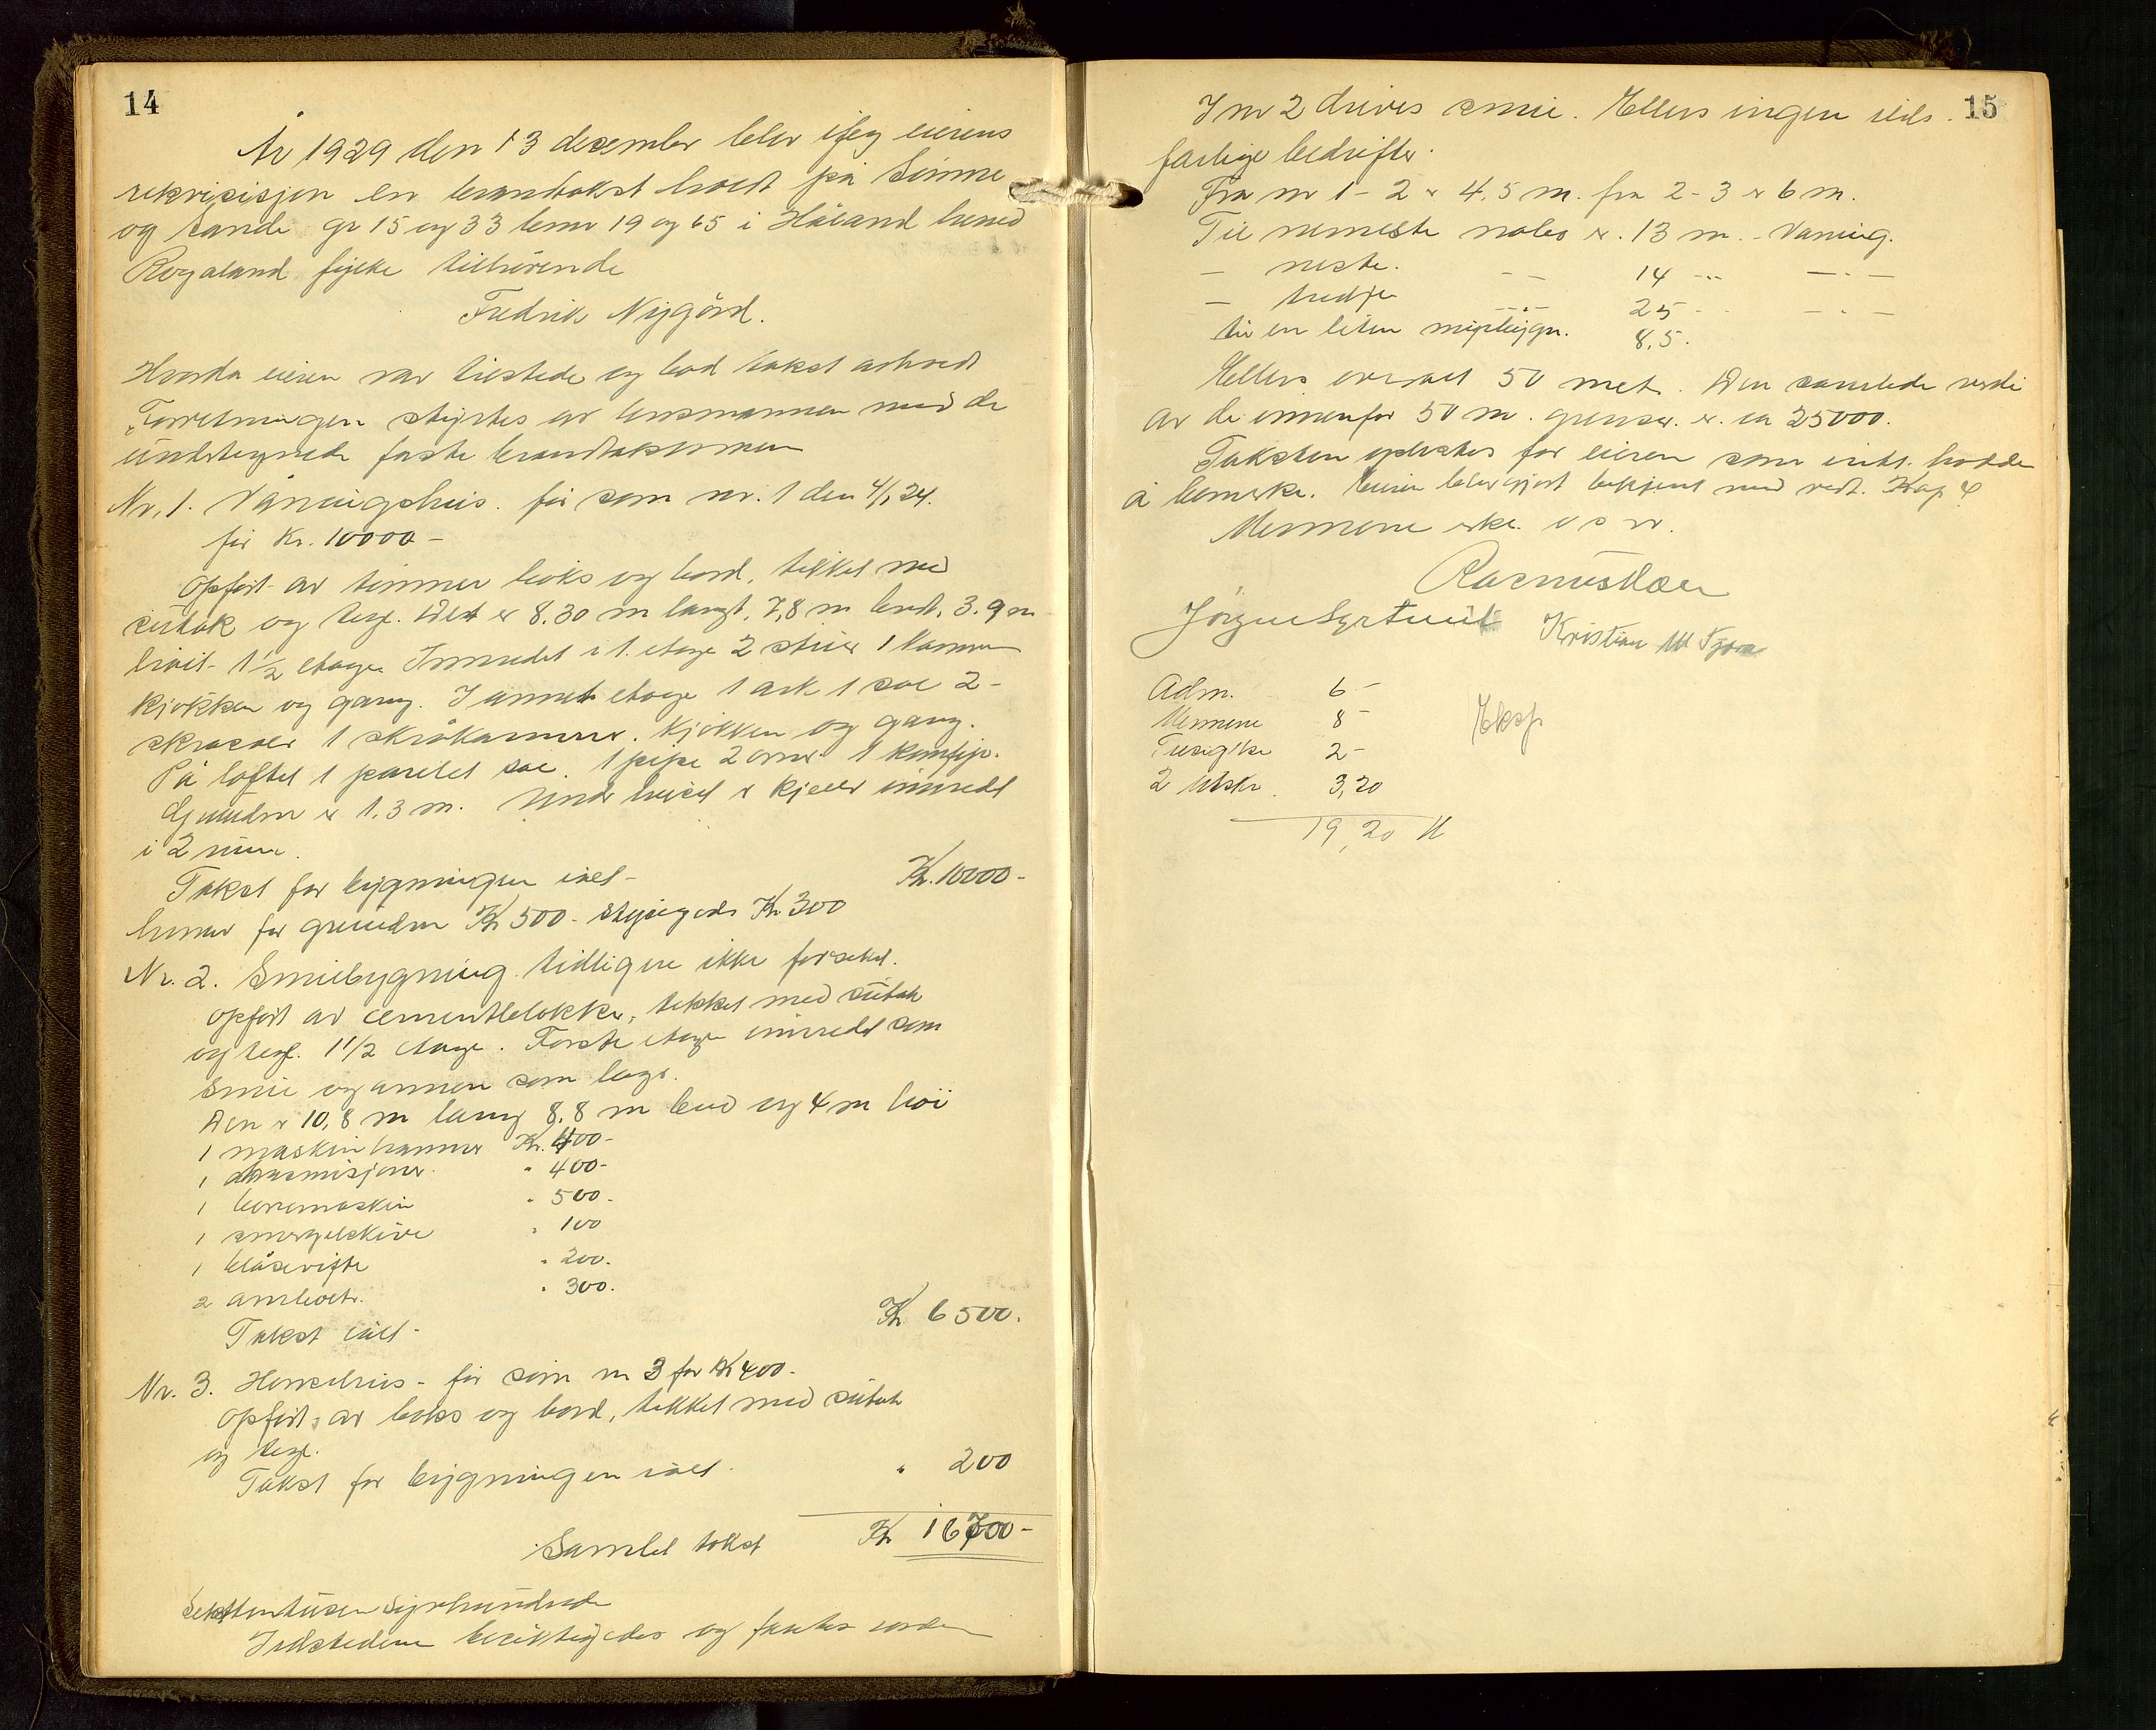 14
År 1929 den 13 desember blev ifølg eierens
rekvisisjon en branntakst holdt på Sømme
og Sande gr 15 og 33 brnr 19 og 65 i Håland herred
Rogaland fylke tilhørende
Fredrik Nygård.
Hvorda eieren var tilstede og bad takst avholdt
Forretningen styrtes av lensmannen med de
undertegnede faste branntakstmenn
Nr. 1. Våningshus. før som nr. 1 den 4/1 24.
for Kr. 10000 -
Opført av tømmer boks og bord, tekket med
sutak og tegl. Det er 8.30 m langt, 7,8 m bredt, 3.9 m
høit - 1 1/2 etage Innredet i 1. etage 2 stuer 1 kammer
kjøkken og gang. I annet etage 1 ark 1 sal 2 -
skrasaler 1 skråkammer. kjøkken og gang.
På loftet 1 panelet sal. 1 pipe 2 ovner 1 komfyr.
Grunden er 1.3 m. Under huset er kjeller innredt
i 2 rum.
Takst for bygningen ialt - Kr. 10000 -
herav for grunden Kr 500 - støpegods Kr 300
Nr. 2. Smiebygning tidligere ikke forsikret.
opført av cementblokker, tekket med sutak
og tegl. 1 1/2 etage. Første etage innredet som
smie og annen som lager.
Den er 10,8 m lang 8,8 m bred og 4 m høi
1 maskinhammer Kr. 400 -
1 transmisjoner " 400 -
1 borremaskin " 500 -
1 smergelskive " 100
1 blåsevifte " 200.
2 ambolter. " 300.
Takst ialt - Kr 6500.
Nr. 3. Hønsehus - før som nr 3 for Kr 400 -
Opført av boks og bord, tekket med sutak
og tegl.
Takst for bygningen ialt - " 200
Samlet takst Kr 16700 -
Sekstentusen syvhundrede
Ildstedene besiktigedes og fantes iorden
15
I nr 2 drives smie. Ellers ingen ilds-
farlige bedrifter.
Fra nr 1 - 2 er 4,5 m. fra 2 - 3 er 6 m.
Til nærmeste nabo er. 13 m. - Våning.
— neste. — — 14 --- — . —
— tredje — . — 25 - - — . —
til en liten bygn. 8,5.
Ellers overalt 50 met. Den samlede verdi
av de innenfor 50 m. grenser. er. ca 25000.
Taksten oplestes for eieren som intet hadde
å bemerke. Eieren blev gjort bekjent med vedt. Kap 4
Mennene erkl. o s v.
Rasmus
Jørgen Kristian
Adm. 6 -
Mennene 8 -
2 -
2 Utskr. 3,20
19,20
Eksp